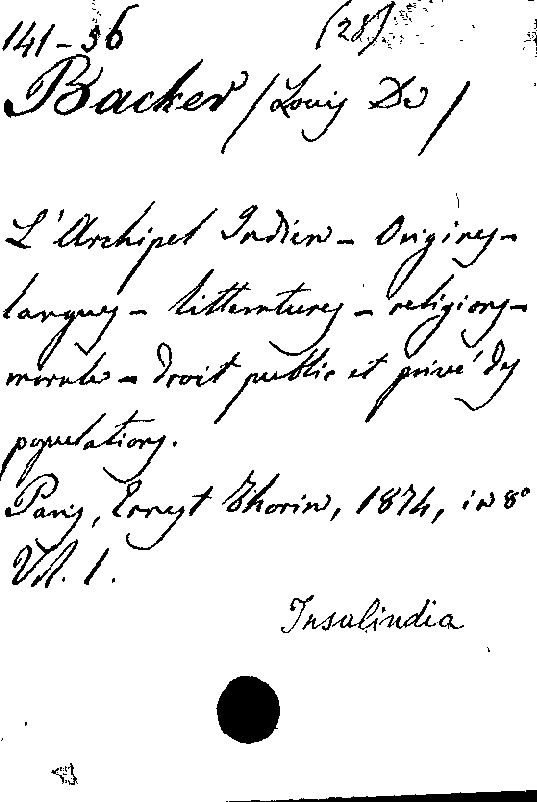 141-36 (28)
Backer (Louis De)
L'Archipel Indien - Origines -
langues - litteratures - religions -
morale - droit public et privé des
populations.
Paris, Ernest Thorin, 1874, in 8°
Vol. 1.
Insulindia